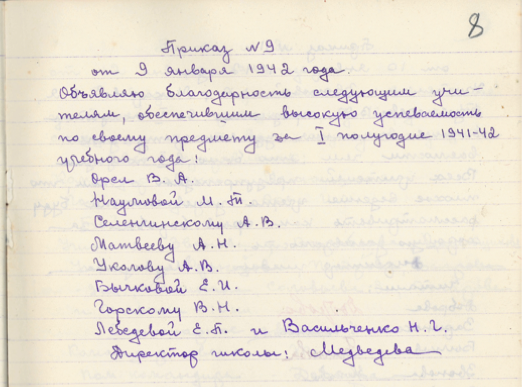 8
Приказ №9
от 9 января 1942 года.
Объявляю благодарность следующим учи-
телям, обеспечившим высокую успеваемость
по своему предмету за I полугодие 1941-42
учебного года:
Орел В. А.
Наумовой М. Т.
Селенгинскому А. В.
Матвееву А. Н.
Уколову А. В.
Бычковой Е. И.
Горскому В. Н.
Лебедевой Е. П. и Васильченко Н. Г.
Директор школы: Медведева